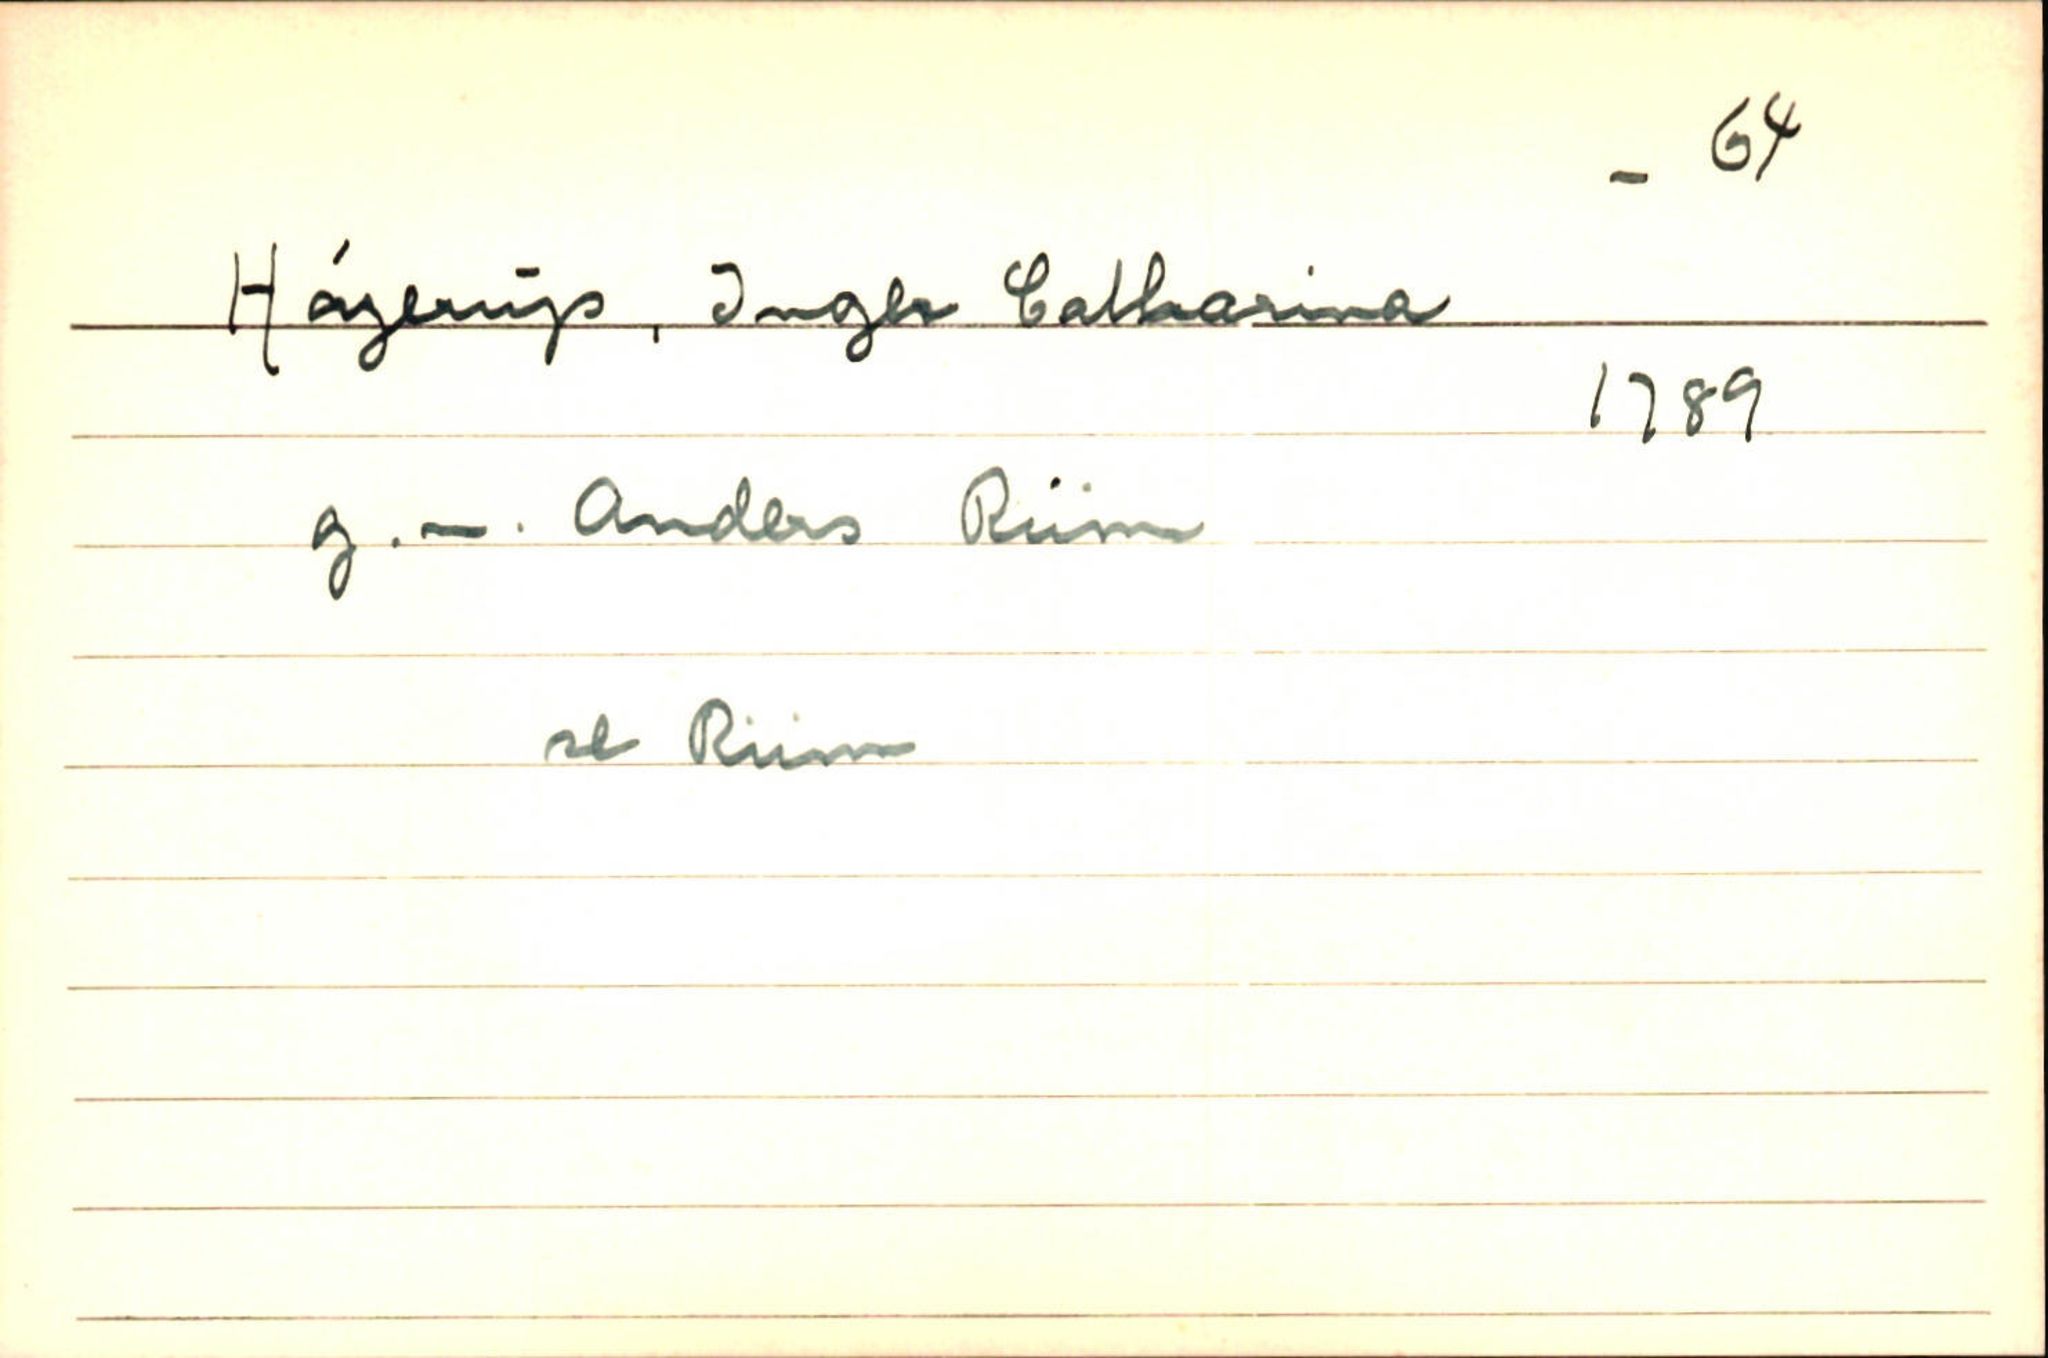 - 64
Hágerūp, Inger Catharina
1789
g. -. Anders Riim
se Riim